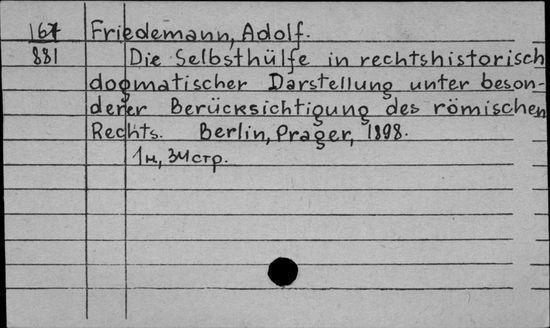 167 Friedemann, Adolf.
881 Die Selbsthülfe in rechtshistorisch
dogmatischer Darstellung unter beson-
derer Berücksichtigung des römischen
Rechts. Berlin, Prager, 1898.
1н, 34стр.